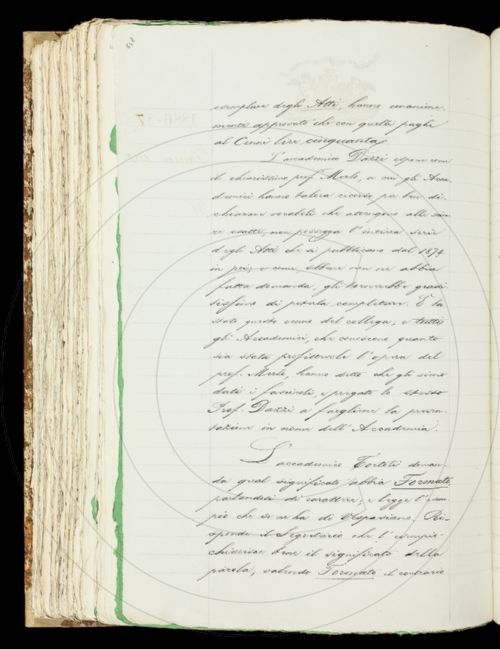 esemplare degli Atti, hanno unanime-
mente approvato che con quella paghi
al Cenci lire cinquanta.
L'accademico Dazzi espone come
il chiarissimo prof. Merlo, a cui gli Acca-
demici hanno talora ricorso per
chiarare vocaboli che attengono alle
non possegga l'intiera serie
degli Atti che si pubblicano dal 1874
in poi; e come, sebbene non ne abbia
fatta domanda, gli tornerebbe gradi-
tissimo di poterla completare. E la
stato questo cenno del collega, e tutti
gli Accademici, che conoscono quanto
sia stata profittevole l'opera del
prof. Merlo, hanno detto che gli siano
dati i fascicoli, e pregato lo stesso
Prof. Dazzi a fargliene la presen-
tazione in nome dell'Accademia.
L'accademico Tortoli doman-
da qual significato abbia Formato
parlandosi di carattere, e legge l'esem-
pio che se ne ha di Vespasiano. Ri-
sponde il Segretario che l'esempio
bene il significato della
parola, valendo Formato il contrario